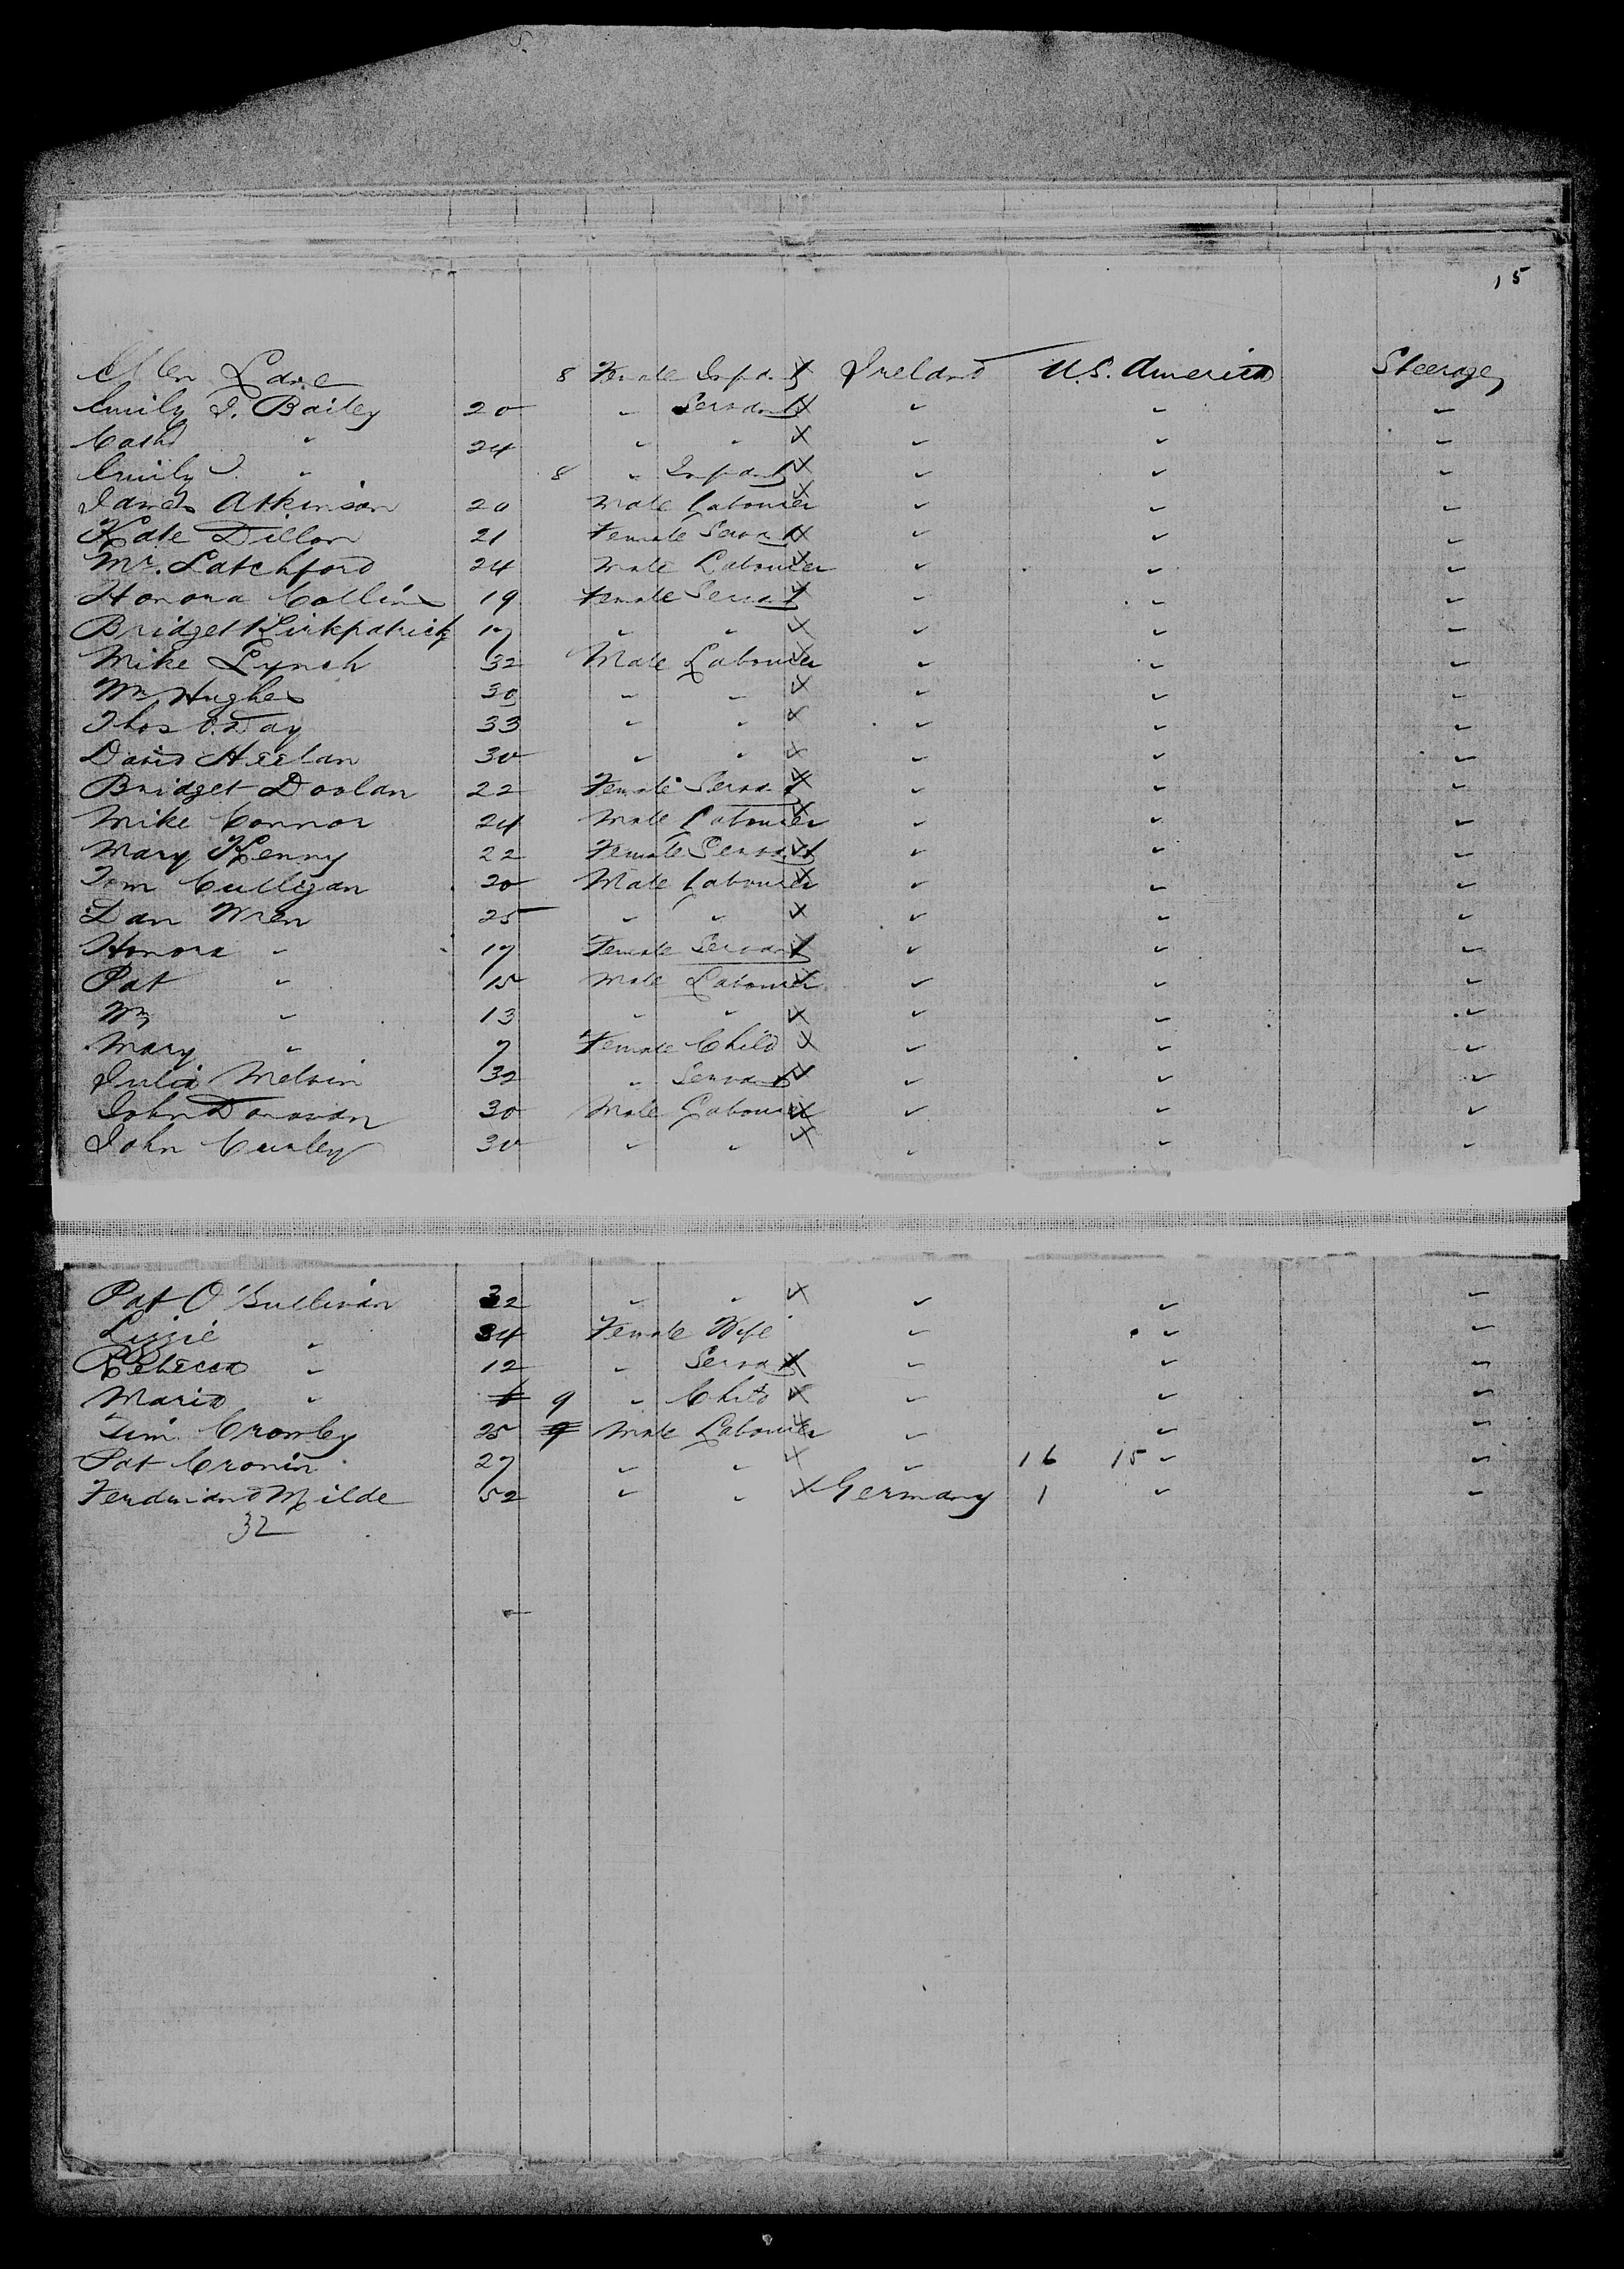 15
Ellen Lane 8 Female Infant X Ireland U.S. America Steerage
Emily J. Bailey 20 " Servant X " " "
Cath " 24 " " X " " "
Emily J. " 8 " Infant X " " "
James Atkinson 20 Male Labourer X " " "
Kate Dillon 21 Female Servant X " " "
Mr. Latchford 24 Male Labourer X " " "
Honora Collins 19 Female Servant X " " "
Bridget Kirkpatrick 17 " " X " " "
Mike Lynch 32 Male Labourer X " " "
Wm Hughes 30 " " X " " "
Thos O.Day 33 " " X " " "
David Heelan 30 " " X " " "
Bridget Doolan 22 Female Servant X " " "
Mike Connor 24 Male Labourer X " " "
Mary Kenny 22 Female Servant X " " "
Tom Culligan 20 Male Labourer X " " "
Dan Wren 25 " " X " " "
Honora " 17 Female Servant X " " "
Pat " 15 Male Labourer X " " "
Wm " 13 " " X " " "
Mary " 7 Female Child X " " "
Julia Melvin 32 " Servant X " " "
John Donovan 30 Male Labourer X " " "
John Curley 30 " " X " " "
Pat O'Sullivan 32 " " X " " "
Lizzie " 34 Female Wife " " "
Rebecca " 12 " Servant X " " "
Maria " 9 " Child X " " "
Tim Crowley 25 9 Male Labourer X " " "
Pat Cronin 27 " " X " 16 15 " "
Ferdinand Milde 52 " " X Germany 1 " "
32